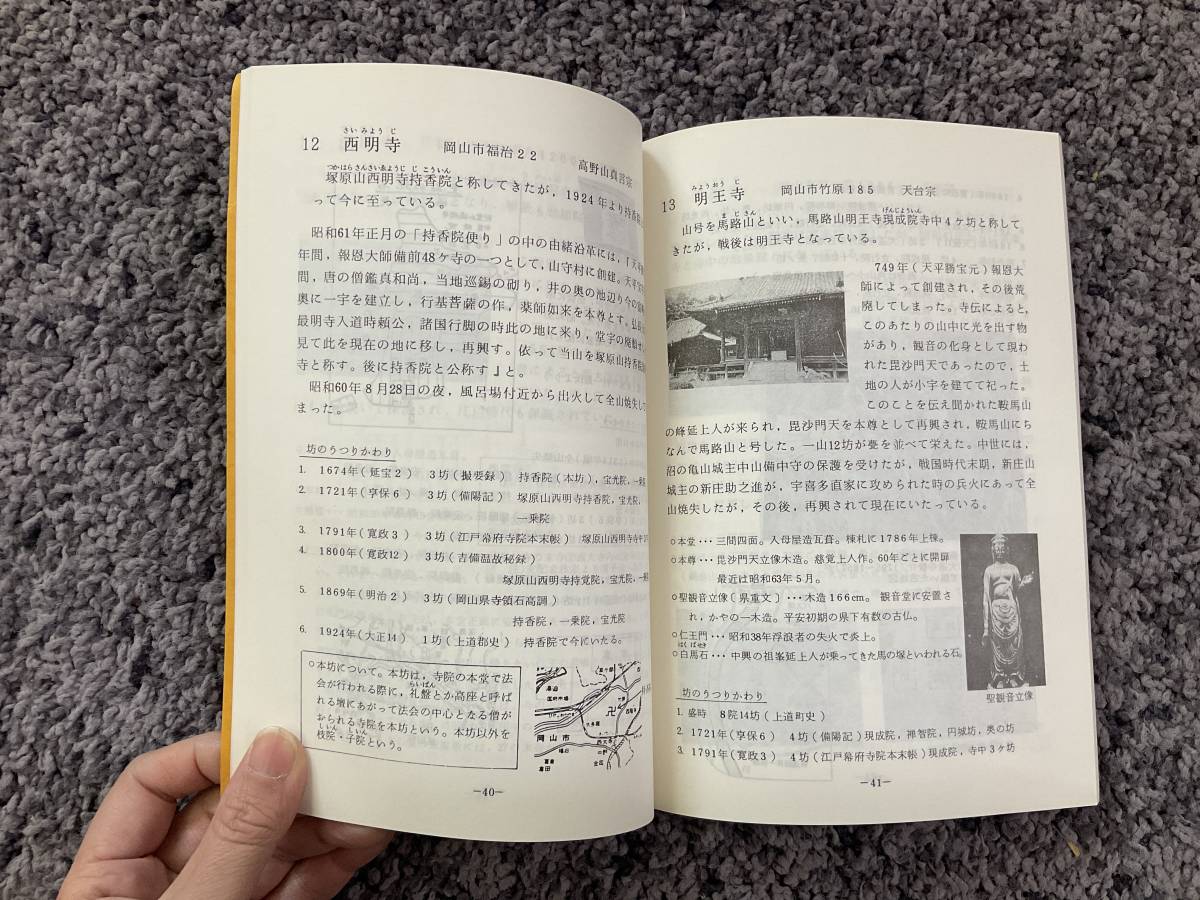 さい みよう じ
12 西明寺 岡山市福治22 高野山真言宗
塚原山西明寺持香院と称してきたが，1924年より持香
って今に至っている。
昭和61年正月の「持香院便り」の中の由緒沿革には，「天平
年間，報恩大師備前48ケ寺の一つとして，山守村に創建。天平宝
間，唐の僧鑑真和尚，当地巡錫の砌り，井の奥の池辺り今の
奥に一宇を建立し，行基菩薩の作，薬師如来を本尊とす。弘長
最明寺入道時頼公，諸国行脚の時此の地に来り，堂宇の廃
見て此を現在の地に移し，再興す。依って当山を塚原山持香院
寺と称す。後に持香院と公称す』と。
昭和60年8月28日の夜，風呂場付近から出火して全山焼失して
まった。
坊のうつりかわり
1. 1674年(延宝2) 3坊(撮要録) 持香院(本坊)，宝光院，一乗
2. 1721年(亨保6) 3坊(備陽記) 塚原山西明寺持香院，宝光院，
一乗院
3. 1791年(寛政3) 3坊(江戸幕府寺院本末帳) 塚原山西明寺寺中
4. 1800年(寛政12) 3坊(吉備温故秘録)
塚原山西明寺持覚院，宝光院，一乗
5. 1869年(明治2) 3坊(岡山県寺領石高調)
持香院，一乗院，宝光院
6. 1924年(大正14) 1坊(上道郡史) 持香院で今にいたる。
○本坊について。本坊は，寺院の本堂で法
会が行われる際に，礼盤とか高座と呼ば
らいばん
れる壇にあがって法会の中心となる僧が
おられる寺院を本坊という。本坊以外を
しいん
枝院・子院という。
岡山市
卍
—40—
みようおう じ
13 明王寺 岡山市竹原185 天台宗
まじさん げんじよういん
山号を馬路山といい，馬路山明王寺現成院寺中4ケ坊と称して
きたが，戦後は明王寺となっている。
749年(天平勝宝元)報恩大
師によって創建され，その後荒
廃してしまった。寺伝によると，
このあたりの山中に光を出す物
があり，観音の化身として現わ
れた毘沙門天であったので，土
地の人が小宇を建てて祀った。
このことを伝え聞かれた鞍馬山
の峰延上人が来られ，毘沙門天を本尊として再興され，鞍馬山にち
なんで馬路山と号した。一山12坊が甍を並べて栄えた。中世には，
沼の亀山城主中山備中守の保護を受けたが，戦国時代末期，新庄山
城主の新庄助之進が，宇喜多直家に攻められた時の兵火にあって全
山焼失したが，その後，再興されて現在にいたっている。
○本堂…三間四面。入母屋造瓦葺。棟札に1786年上棟。
○本尊…毘沙門天立像木造。慈覚上人作。60年ごとに開扉
最近は昭和63年5月。
○聖観音立像〔県重文〕…木造166cm。観音堂に安置さ
れ，かやの一木造。平安初期の県下有数の古仏。
○仁王門…昭和38年浮浪者の失火で炎上。
はくばせき
○白馬石…中興の祖峯延上人が乗ってきた馬の塚といわれる石。
聖観音立像
坊のうつりかわり
1. 盛時 8院14坊(上道町史)
2. 1721年(亨保6) 4坊(備陽記)現成院，禅智院，円城坊，奥の坊
3. 1791年(寛政3) 4坊(江戸幕府寺院本末帳)現成院，寺中3ケ坊
—41—